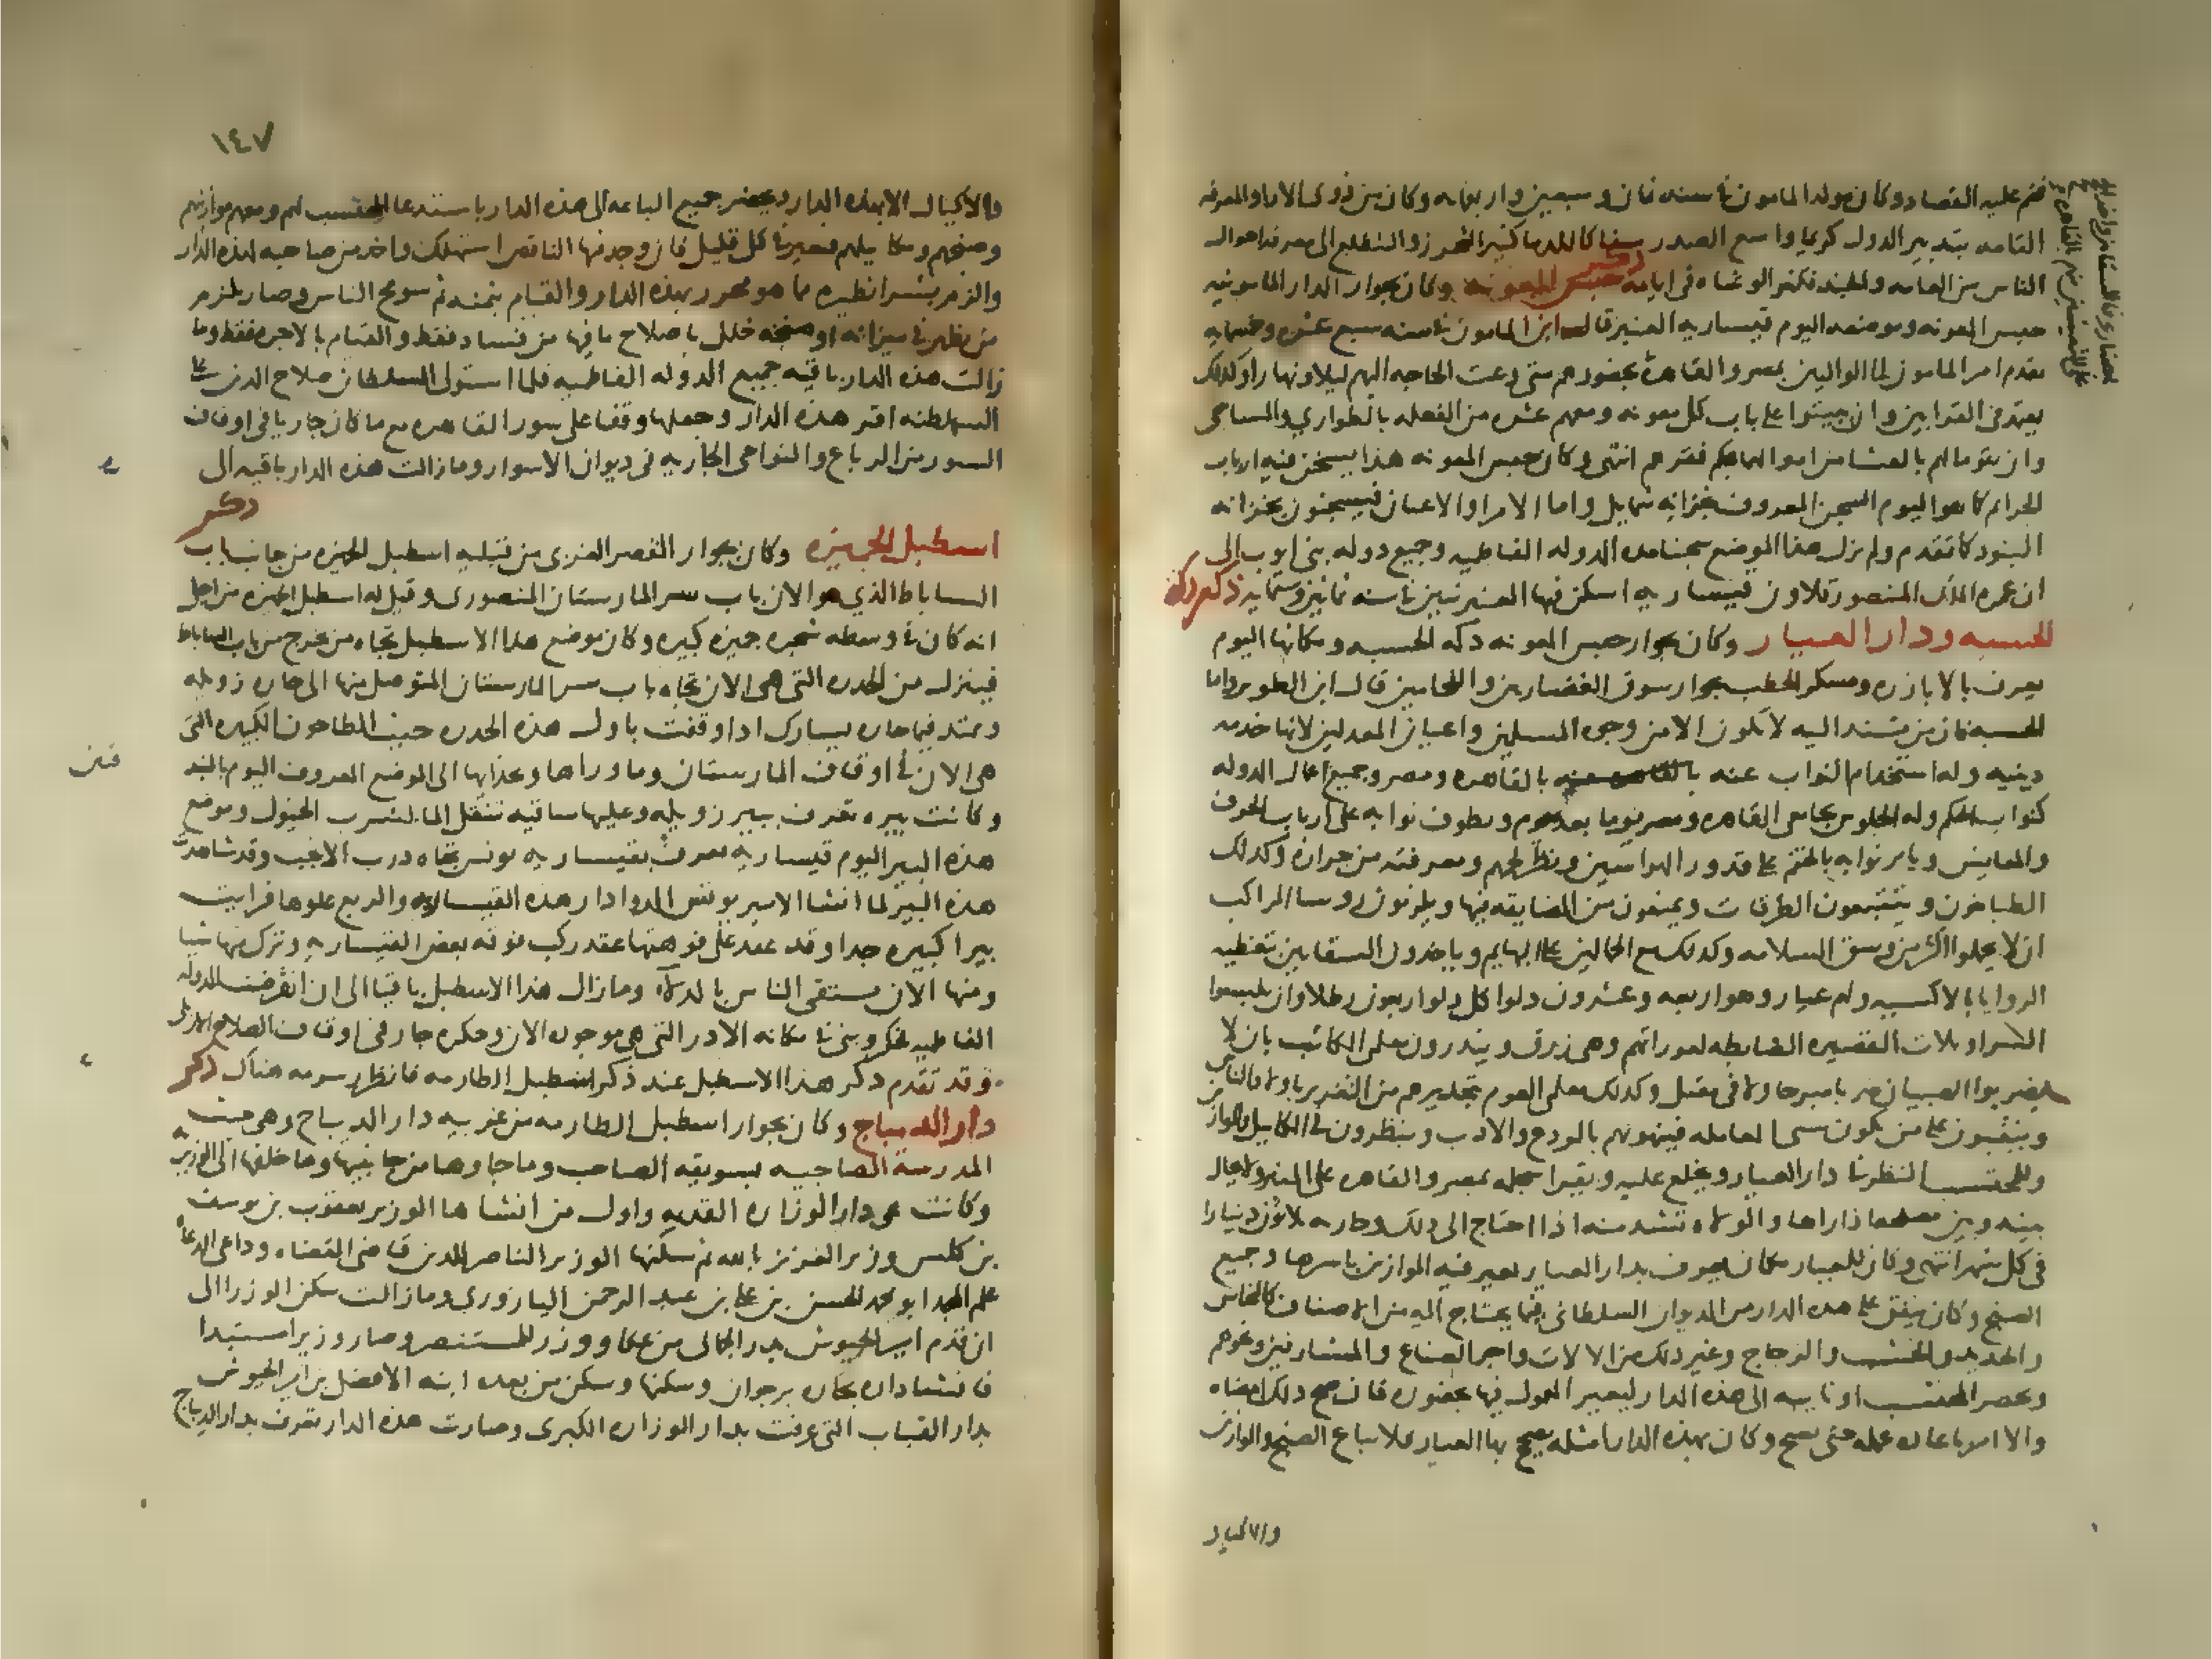 فتم عليه القصاد وكان مولد المامون في سنه ثمان وسبعين واربعمايه وكان من ذوى الاراو المعرفه
التامه بتدبير الدول كريما واسع الصدر سفاكا للدما كثير التحرز والتطلع الى معرفه احوال
الناس من العامه والجند فكثر الوشاه فى ايامه ذكر حبس المعونه وكان بجوار الدار المامونيه
حبس المعونه وموضعه اليوم قيساريه العنبر قال ابن المامون في سنه سبع عشره وخمسمايه
تقدم امر المامون الى الواليين بمصر والقاهرة بحضورهم متى دعت الحاجه اليهم ليلا ونهارا وكذلك
يعتمد فى القرابين وان يبيتوا على باب كل معونه ومعهم عشره من الفعله بالطوارى والمساحى
وان يقوما لهم بالعشا من اموالهما بحكم فقرهم انتهى وكان حبس المعونه هذا يسجن فيه ارباب
الجرايم كما هو اليوم السجن المعروف بخزانه شمايل واما الامرا والاعيان فيسجنون بخزانه
البنود كما تقدم ولم يزل هذا الموضع سجنا مده الدوله الفاطميه وجميع دوله بنى ايوب الى
ان عمره الملك المنصور قلاون قيساريه اسكن فيها العنبرنيين في سنه ثمانين وستمايه ذكر دكة
الحسبه ودار العيار وكان بجوار حبس المعونه دكه الحسبه ومكانها اليوم
يعرف بالابازره ومسكر الحطب بجوار سوق القصارين والفحامين قال ابن الطوير واما
الحسبه فان من تسند اليه لا يكون الا من وجوه المسلمين واعيان المعدلين لانها خدمه
دينيه وله استخدام النواب عنه بالقاهره ومصر وجميع اعمال الدوله
كنواب الحكم وله الجلوس بجامعى القاهره ومصر يوما بعد يوم ويطوف نوابه على ارباب الحرف
والمعايش ويامر نوابه بالختم على قدور الهراسين ونظر لحمهم ومعرفته من جزاره وكذلك
الطباخون ويتتبعون الطرقات ويمنعون من المضايقه فيها ويلزمون روسا المراكب
ان لا يحملوا اكثر من وسق السلامه وكذلك مع الحمالين على البهايم وياخذون السقايين بتغطيه
الروايا بالاكسيه ولهم عيار وهو اربعه وعشرون دلوا كل دلو اربعون رطلا وان يلبسوا
السراويلات القصيره الضابطه لعوراتهم وهى زرق وينذرون معلمى المكاتب بان لا
يضربوا الصبيان ضربا مبرحا ولا فى مقتل وكذلك معلمى العوم بتحذيرهم من التغرير باولاد الناس
ويقفون على من يكون سى المعامله فينهونهم بالردع والادب وينظرون فى المكاييل والموازين
وللمحتسب النظر في دار العيار ويخلع عليه ويقرا سجله بمصر والقاهره على المنبر ولا يحال
بينه وبين مصلحه اذا راها والولاه تشد منه اذا احتاج الى ذلك وجاريه ثلاثون دينارا
فى كل شهر انتهى وكان للعيار مكان يعرف بدار العيار يعير فيه الموازين باسرها وجميع
الصنج وكان ينفق على هذه الدار من الديوان السلطانى فيما يحتاج اليه من الاصناف كالنحاس
والحديد والخشب والزجاج وغير ذلك من الالات واجر الصناع والمشارفين ونحوهم
ويحضر المحتسب او نايبه الى هذه الدار ليعير المعمول فيها بحضوره فان صح ذلك امضاه
والا امر باعاده عمله حتى يصح وكان بهذه الدار امثله يصحح بها العيار فلا تباع الصنج والموازين
والاكيال
١٤٧
والاكيال الا بهذه الدار ويحضر جميع الباعه الى هذه الدار باستدعا المحتسب لهم ومعهم موازينهم
وصنجهم ومكاييلهم فتعير في كل قليل فان وجد فيها الناقص استهلك واخذ من صاحبه لهذه الدار
والزم بشرا نظيره مما هو محرر بهذه الدار والقيام بثمنه ثم سومح الناس وصار يلزم
من يظهر في ميزانه او صنجه خلل باصلاح ما فيها من فساد فقط والقيام بالاجره فقط وما
زالت هذه الدار باقيه جميع الدوله الفاطميه فلما استولى السلطان صلاح الدين على
السلطنه اقر هذه الدار وجعلها وقفا على سور القاهره مع ما كان جاريا فى اوقاف
السور من الرباع والنواحى الجاريه فى ديوان الاسوار وما زالت هذه الدار باقيه الى
ذكر
اسطبل الجميزه وكان بجوار القصر الغربى من قبليه اسطبل الجميزه من جانب باب
الساباط الذي هو الان باب سر المارستان المنصورى وقيل له اسطبل الجميزه من اجل
انه كان في وسطه شجره جميزه كبيره وكان موضع هذا الاسطبل تجاه من يخرج من باب الساباط
فينزل من الحدره التى هى الان تجاه باب سر المارستان المتوصل منها الى حاره زويله
ويمتد فيما حاذه يسارك اذا وقفت باول هذه الحدره حيث الطاحون الكبيره التى
هى الان في اوقاف المارستان وما وراها وبحذايها الى الموضع المعروف اليوم بالبند
وكانت بيره تعرف ببير زويله وعليها ساقيه تنقل الما لشرب الخيول وموضع
هذه البير اليوم قيساريه تعرف بقيساريه يونس تجاه درب الانجب وقد شاهدت
هذه البير لما انشا الامير يونس الدوادار هذه القيساريه والربع علوها فرايت
بيرا كبيره جدا وقد عقد على فوهتها عقد ركب فوقه بعض القيساريه وترك منها شيا
ومنها الان يستقى الناس بالدلا وما زال هذا الاسطبل باقيا الى ان انقرضت الدوله
الفاطميه فحكر وبنى في مكانه الادر التى هى موجوده الان وحكره جار فى اوقاف الصلاح الاربلى
وقد تقدم ذكر هذا الاسطبل عند ذكر اسطبل الطارمه فانظر رسومه هناك ذكر
دار الديباج وكان بجوار اسطبل الطارمه من غربيه دار الديباج وهى حيث
المدرسة الصاحبيه بسويقه الصاحب وما جاورها من جانبيها وما خلفها الى الوزيريه
وكانت هى دار الوزاره القديمه واول من انشاها الوزير يعقوب بن يوسف
بن كلس وزير العزيز بالله ثم سكنها الوزير الناصر للدين قاضى القضاه وداعى الدعاه
علم المجد ابو محمد الحسن بن على بن عبد الرحمن اليازورى وما زالت سكن الوزرا الى
ان قدم امير الجيوش بدر الجمالى من عكا ووزر للمستنصر وصار وزيرا مستبدا
فانشا داره بحاره برجوان وسكنها وسكن من بعده ابنه الافضل بن امير الجيوش
بدار القباب التى عرفت بدار الوزاره الكبرى وصارت هذه الدار تعرف بدار الديباج